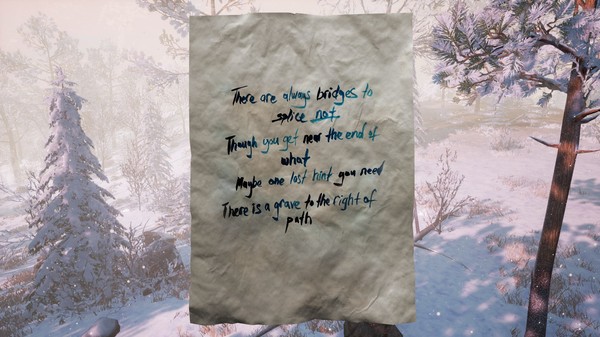 There are always bridges to
splice not
Though you get near the end of
what
Maybe one last hint you need
There is a grave to the right of
path